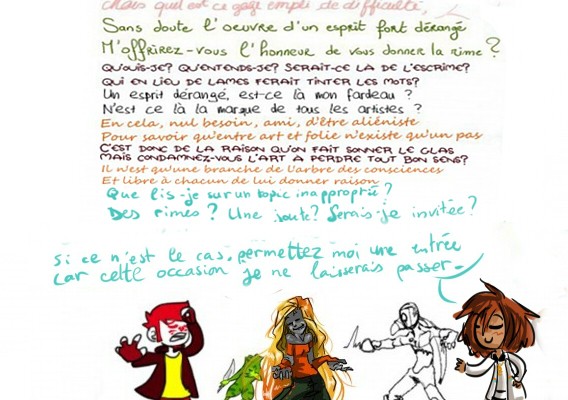 Mais quel est ce gage empli de difficulté,
Sans doute l'oeuvre d'un esprit fort dérangé
M'offrirez-vous l'honneur de vous donner la rime ?
QU'OUIS-JE? QU'ENTENDS-JE? SERAIT-CE LA DE L'ESCRIME?
QUI EN LIEU DE LAMES FERAIT TINTER LES MOTS?
Un esprit dérangé, est-ce là mon fardeau ?
N'est ce là la marque de tous les artistes ?
En cela, nul besoin, ami, d'être aliéniste
Pour savoir qu'entre art et folie n'existe qu'un pas
C'EST DONC DE LA RAISON QU'ON FAIT SONNER LE GLAS
MAIS CONDAMNEZ-VOUS L'ART A PERDRE TOUT BON SENS?
Il n'est qu'une branche de l'arbre des consciences
Et libre à chacun de lui donner raison
Que lis-je sur un topic inapproprié ?
Des rimes ? Une joute ? Serais-je invitée ?
Si ce n'est le cas, permettez moi une entrée
Car cette occasion je ne laisserais passer